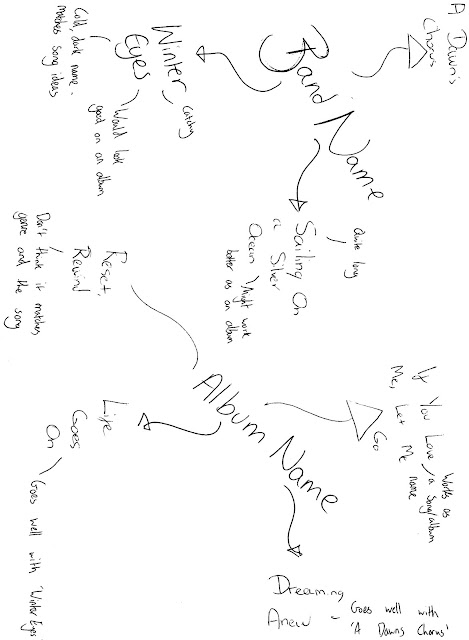 Band Name
A Dawn's
Chorus
Winter
Eyes
Catchy
Cold, dark name -
matches song ideas
Would look
good on an album
Sailing On
a Silver
Ocean
Quite long
Might work
better as an album
Album Name
Reset,
Rewind
Don't think it matches
genre and the song
If You Love
Me, Let Me
Go
Works as
a song/album
name
Life
Goes
On
Goes well with 'Winter Eyes'
Dreaming
Anew
- Goes well with
'A Dawns Chorus'